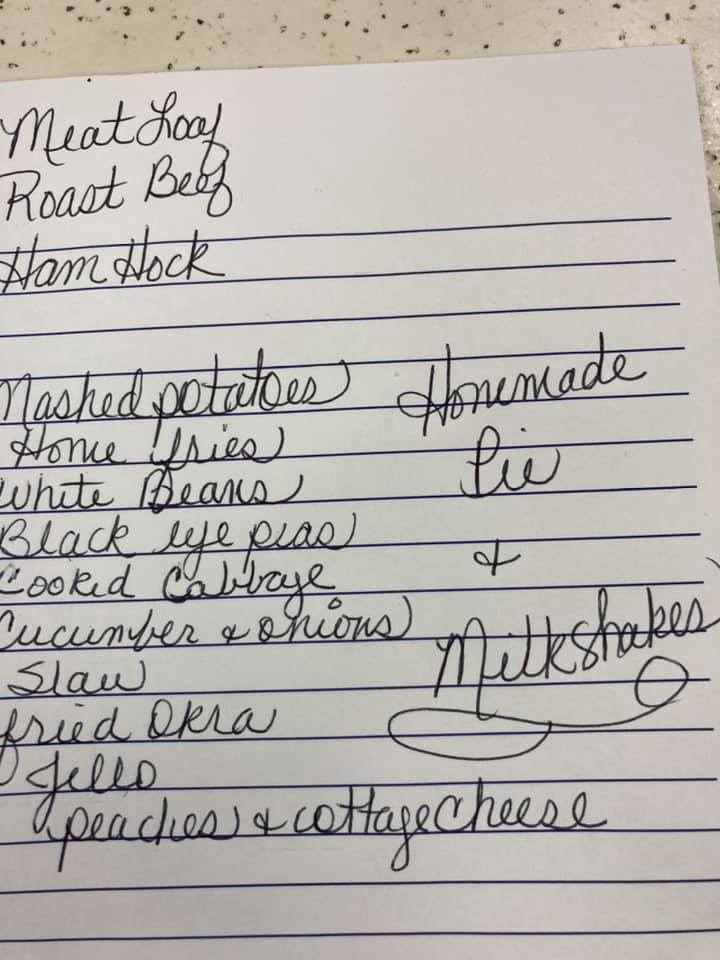 Meat Loaf
Roast Beef
Ham Hock
Mashed potatoes
Home fries
White Beans
Black eye peas
Cooked Cabbage
Cucumber & onions
Slaw
fried Okra
Jello
peaches & cottage cheese
Homemade
Pie
&
Milkshakes